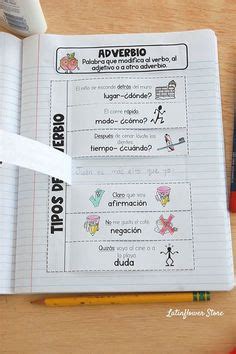 ADVERBIO
Palabra que modifica al verbo, al
adjetivo o a otro adverbio.
TIPOS DE ADVERBIO
El niño se esconde detrás del muro
lugar-¿dónde?
Él corre rápido.
modo- ¿cómo?
Después de cenar lávate los
dientes.
tiempo- ¿cuándo?
Claro que voy
afirmación
No me gusta el café
negación
Quizás vaya al cine o a
la playa.
duda
Latinflower Store